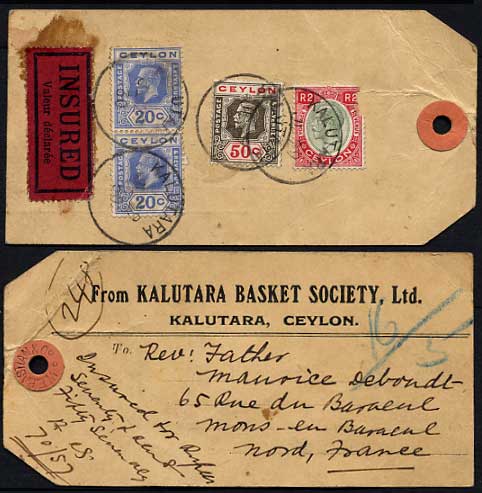 INSURED
Valeur déclarée
CEYLON
POSTAGE
20c
CEYLON
POSTAGE
20c
CEYLON
POSTAGE
50c
R2 R2
CEYLON
KALUTARA
From KALUTARA BASKET SOCIETY, Ltd.
KALUTARA, CEYLON.
To. Rev: Father
Maurice Deboudt-
65 Rue du Baraeul
Mons-en Baraeul
Nord, France
248
Insured to Rupees
Seventy & cents
Fifty Seven
Rs
70/57